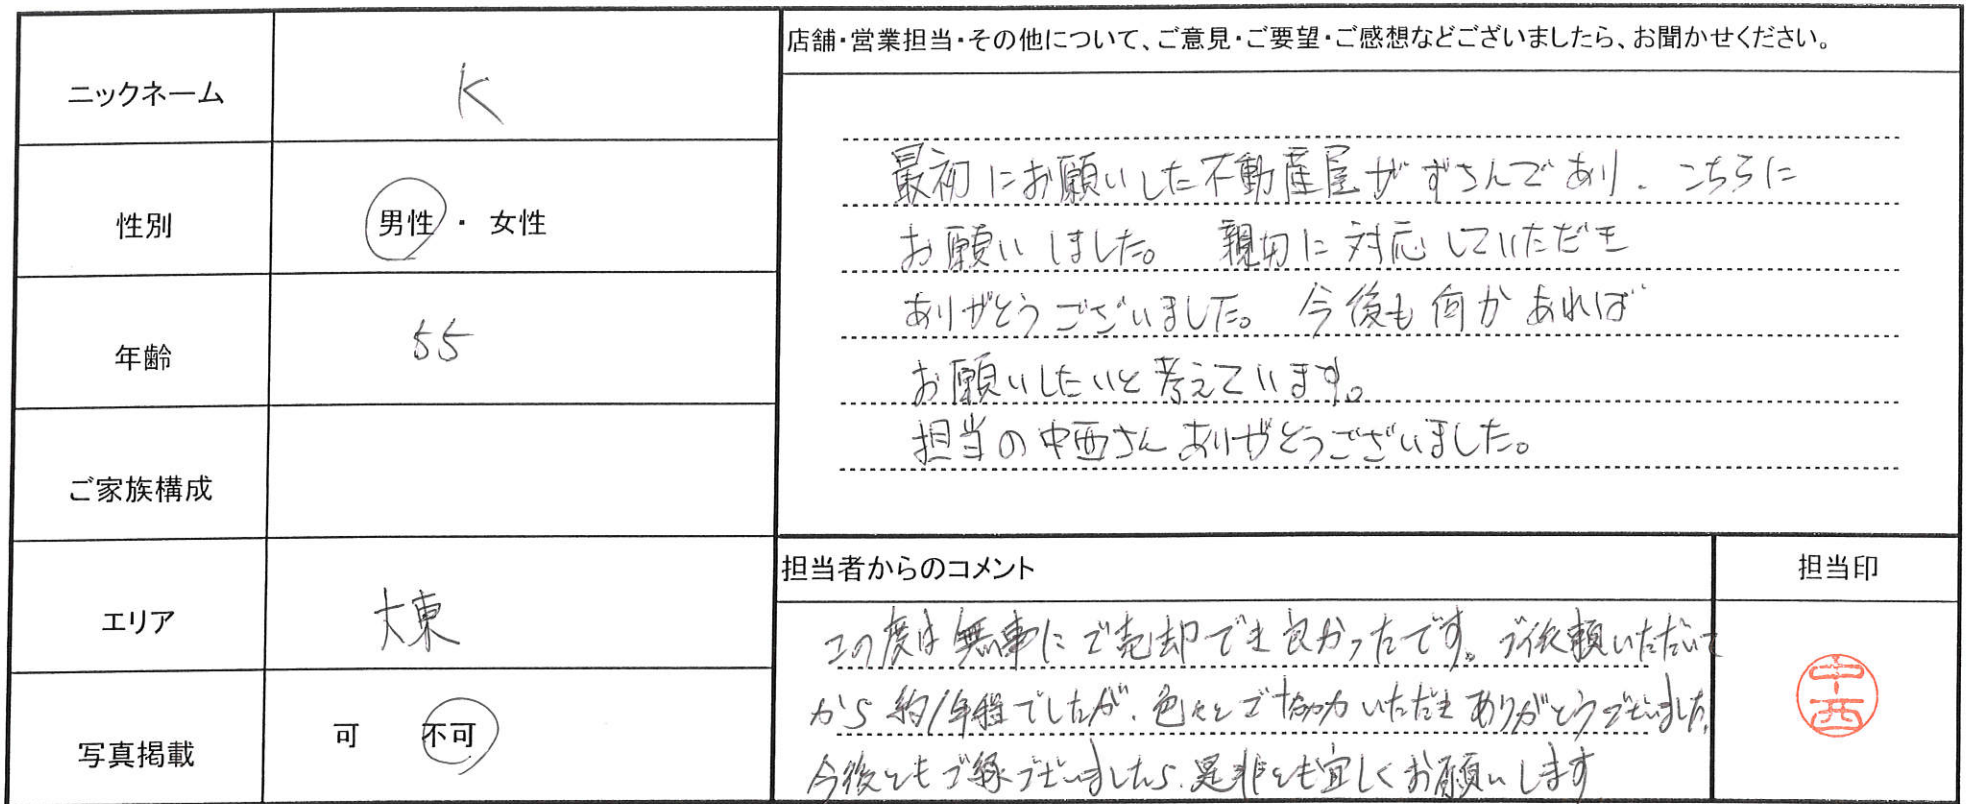 ニックネーム
K
性別
男性 ・ 女性
年齢
55
ご家族構成
エリア
大東
写真掲載
可 不可
店舗・営業担当・その他について、ご意見・ご要望・ご感想などございましたら、お聞かせください。
最初にお願いした不動産屋がずさんであり、こちらに
お願いしました。 親切に対応していただき
ありがとうございました。 今後も何かあれば
お願いしたいと考えています。
担当の中西さんありがとうございました。
担当者からのコメント
この度は無事にご売却でき良かったです。ご依頼いただいて
から約1年程でしたが、色々とご協力いただきありがとうございました。
今後ともご縁ございましたら、是非とも宜しくお願いします
担当印
中西